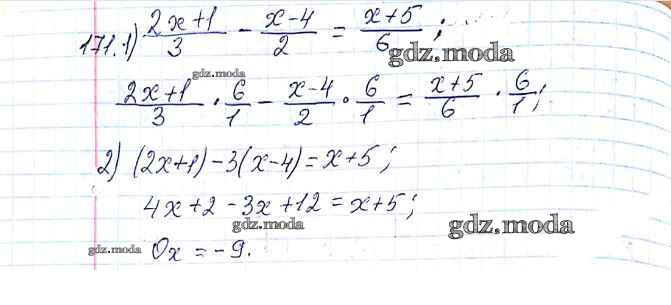 171.1) (2x+1)/3 - (x-4)/2 = (x+5)/6;
gdz.moda
gdz.moda
(2x+1)/3 · 6/1 - (x-4)/2 · 6/1 = (x+5)/6 · 6/1;
2) (2x+1)-3(x-4)=x+5;
4x+2-3x+12=x+5;
gdz.moda
gdz.moda
gdz.moda
0x=-9.